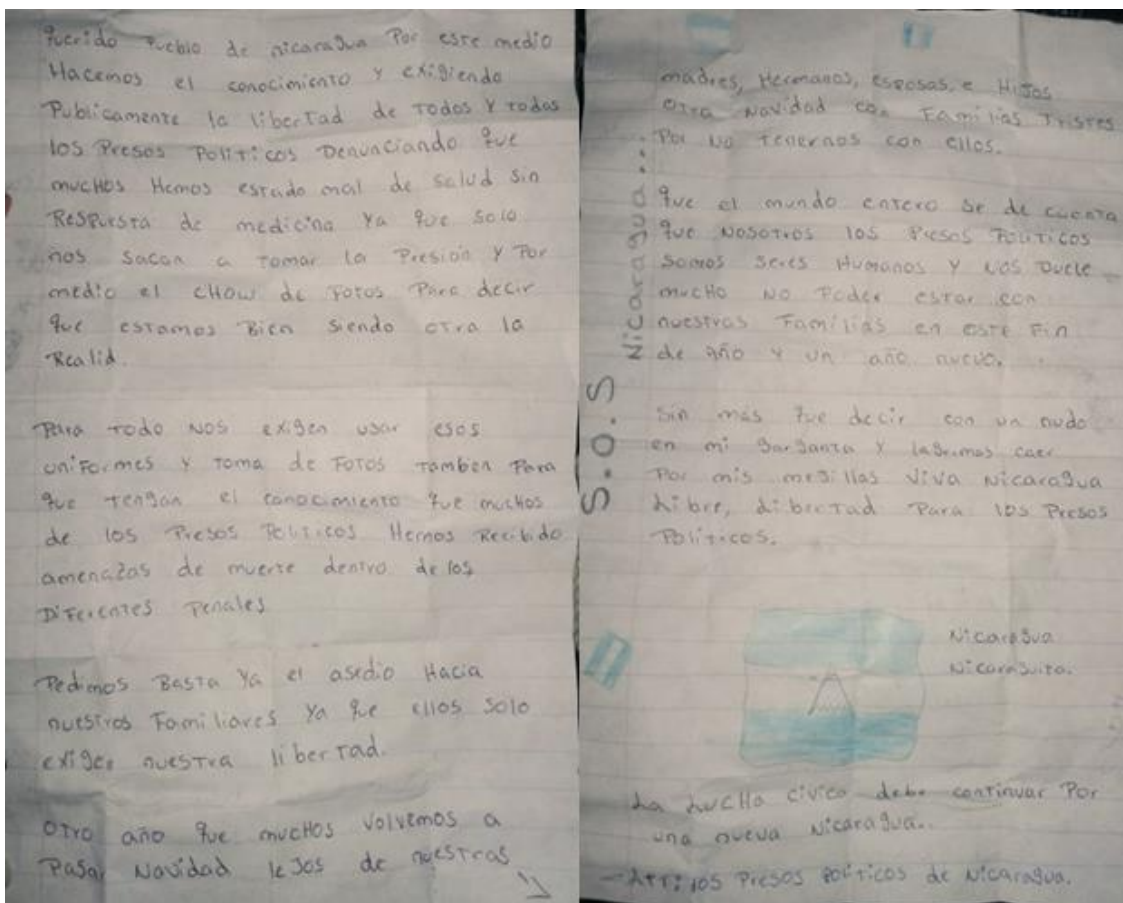 Querido Pueblo de nicaragua Por este medio
Hacemos el conocimiento y exigiendo
Publicamente la libertad de Todos y todas
los Presos Politicos Denunciando que
mucHos Hemos estado mal de salud sin
Respuesta de medicina Ya que solo
nos sacan a tomar la Presión y Por
medio el cHow de Fotos Para decir
que estamos Bien siendo otra la
Realid.
Para todo NOS exigen usar esos
uniFormes y toma de Fotos tambien Para
que tengan el conocimiento que mucHos
de los Presos Politicos Hemos Recibido
amenazas de muerte dentro de los
DiFerentes Penales
Pedimos Basta Ya el asedio Hacia
nuestros Familiares Ya que ellos solo
exigen nuestra libertad.
OTro año que mucHos Volvemos a
Pasar Navidad leJos de nuestras
madres, Hermanos, esposas, e HiJos
OTra Navidad con Familias Tristes
Por No tenernos con ellos.
que el mundo entero se de cuenta
que Nosotros los Presos Politicos
somos seres Humanos y Nos Duele
mucHo No Poder estar con
nuestras Familias en este Fin
de año y un año nuevo.
Sin más que decir con un nudo
en mi garganta y lagrimas caer
Por mis megillas Viva Nicaragua
Libre, Libertad Para los Presos
Politicos.
S.O.S Nicaragua...
Nicaragua
Nicaraguita.
La LucHa civica debe continuar Por
una nueva Nicaragua..
-ATT: los Presos Politicos de Nicaragua.